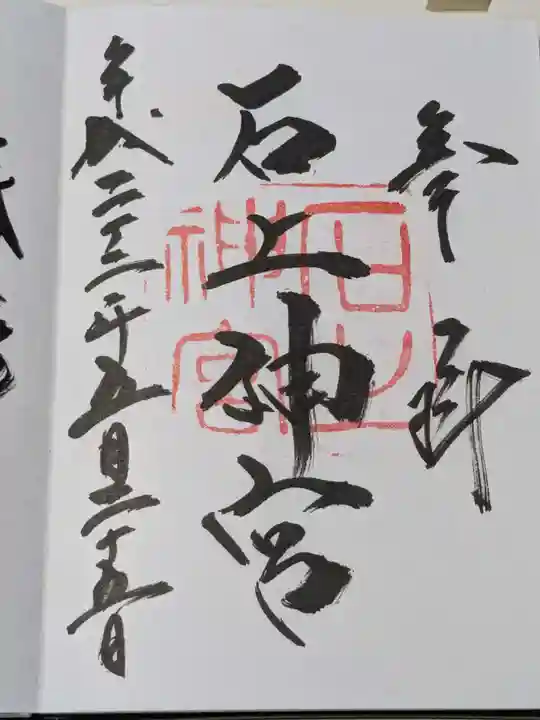 奉拝
石上神宮
平成二十三年五月二十五日
石上神宮